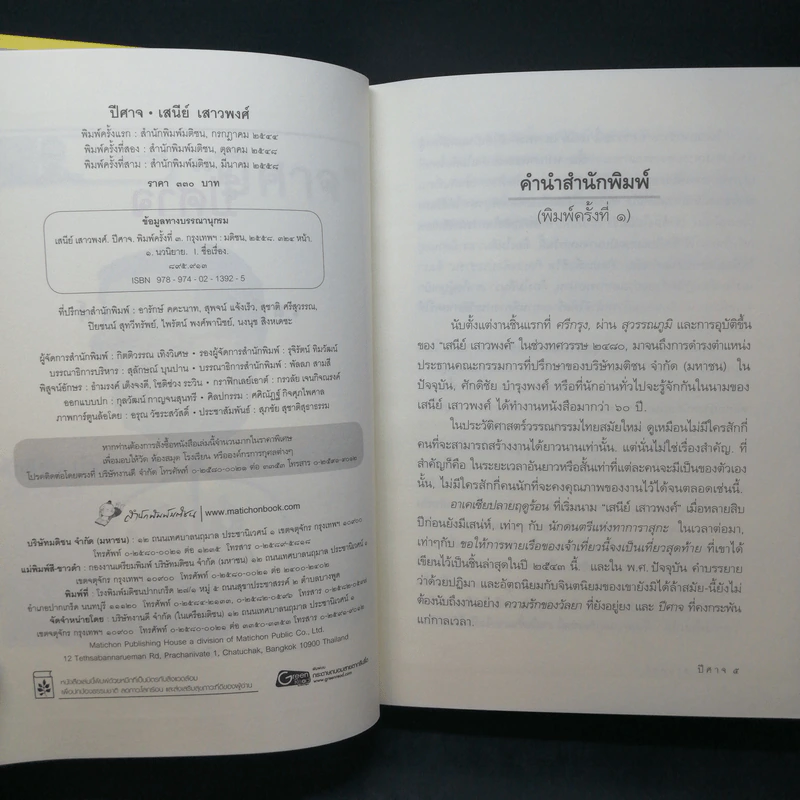 ปีศาจ • เสนีย์ เสาวพงศ์
พิมพ์ครั้งแรก : สำนักพิมพ์มติชน, กรกฎาคม ๒๕๔๔
พิมพ์ครั้งที่สอง : สำนักพิมพ์มติชน, ตุลาคม ๒๕๔๘
พิมพ์ครั้งที่สาม : สำนักพิมพ์มติชน, มีนาคม ๒๕๕๘
ราคา ๓๓๐ บาท
ข้อมูลทางบรรณานุกรม
เสนีย์ เสาวพงศ์. ปีศาจ. พิมพ์ครั้งที่ ๓. กรุงเทพฯ : มติชน, ๒๕๕๘. ๓๒๔ หน้า.
๑. นวนิยาย. I. ชื่อเรื่อง.
๘๙๕.๙๑๓
ISBN 978 - 974 - 02 - 1392 - 5
ที่ปรึกษาสำนักพิมพ์ : อารักษ์ คคะนาท, สุพจน์ แจ้งเร็ว, สุชาติ ศรีสุวรรณ,
ปิยชนน์ สุทวีทรัพย์, ไพรัตน์ พงศ์พานิชย์, นงนุช สิงหเดชะ
ผู้จัดการสำนักพิมพ์ : กิตติวรรณ เทิงวิเศษ • รองผู้จัดการสำนักพิมพ์ : รุจิรัตน์ ทิมวัฒน์
บรรณาธิการบริหาร : สุลักษณ์ บุนปาน • บรรณาธิการสำนักพิมพ์ : พัลลภ สามสี
พิสูจน์อักษร : อำมรงค์ เติ่งจงดี, โชติช่วง ระวิน • กราฟิกเลย์เอาต์ : กรวลัย เจนกิจณรงค์
ออกแบบปก : กุลวัฒน์ กาญจนสุนทรี • ศิลปกรรม : ศศิณัฏฐ์ กิจศุภไพศาล
ภาพการ์ตูนล้อโดย : อรุณ วัชระสวัสดิ์ • ประชาสัมพันธ์ : สุภชัย สุชาติสุธาธรรม
หากท่านต้องการสั่งซื้อหนังสือเล่มนี้จำนวนมากในราคาพิเศษ
เพื่อมอบให้วัด ห้องสมุด โรงเรียน หรือองค์กรการกุศลต่างๆ
โปรดติดต่อโดยตรงที่ บริษัทงานดี จำกัด โทรศัพท์ ๐-๒๕๘๐-๐๐๒๑ ต่อ ๓๓๕๓ โทรสาร ๐-๒๕๙๑-๙๐๑๒
สำนักพิมพ์มติชน | www.matichonbook.com
บริษัทมติชน จำกัด (มหาชน) : ๑๒ ถนนเทศบาลนฤมาล ประชานิเวศน์ ๑ เขตจตุจักร กรุงเทพฯ ๑๐๙๐๐
โทรศัพท์ ๐-๒๕๘๐-๐๐๒๑ ต่อ ๑๒๓๕ โทรสาร ๐-๒๕๘๙-๕๘๑๘
แม่พิมพ์สี-ขาวดำ : กองงานเตรียมพิมพ์ บริษัทมติชน จำกัด (มหาชน) ๑๒ ถนนเทศบาลนฤมาล ประชานิเวศน์ ๑
เขตจตุจักร กรุงเทพฯ ๑๐๙๐๐ โทรศัพท์ ๐-๒๕๘๐-๐๐๒๑ ต่อ ๒๔๐๐-๒๔๐๒
พิมพ์ที่ : โรงพิมพ์มติชนปากเกร็ด ๒๗/๑ หมู่ ๕ ถนนสุขาประชาสรรค์ ๒ ตำบลบางพูด
อำเภอปากเกร็ด นนทบุรี ๑๑๑๒๐ โทรศัพท์ ๐-๒๕๘๔-๒๑๓๓, ๐-๒๕๘๒-๐๕๙๖ โทรสาร ๐-๒๕๘๒-๐๕๙๗
จัดจำหน่ายโดย : บริษัทงานดี จำกัด (ในเครือมติชน) ๑๒ ถนนเทศบาลนฤมาล ประชานิเวศน์ ๑
เขตจตุจักร กรุงเทพฯ ๑๐๙๐๐ โทรศัพท์ ๐-๒๕๘๐-๐๐๒๑ ต่อ ๓๓๕๐-๓๓๕๓ โทรสาร ๐-๒๕๙๑-๙๐๑๒
Matichon Publishing House a division of Matichon Public Co., Ltd.
12 Tethsabannarueman Rd, Prachanivate 1, Chatuchak, Bangkok 10900 Thailand
หนังสือเล่มนี้พิมพ์ด้วยหมึกที่เป็นมิตรกับสิ่งแวดล้อม
เพื่อปกป้องธรรมชาติ ลดภาวะโลกร้อน และส่งเสริมสุขภาวะที่ดีของผู้อ่าน
Green Read
กระดาษถนอมสายตากรีนรี้ด
www.greenread.com
คำนำสำนักพิมพ์
(พิมพ์ครั้งที่ ๑)
นับตั้งแต่งานชิ้นแรกที่ ศรีกรุง, ผ่าน สุวรรณภูมิ และการอุบัติขึ้น
ของ "เสนีย์ เสาวพงศ์" ในช่วงทศวรรษ ๒๔๘๐, มาจนถึงการดำรงตำแหน่ง
ประธานคณะกรรมการที่ปรึกษาของบริษัทมติชน จำกัด (มหาชน) ใน
ปัจจุบัน, ศักดิชัย บำรุงพงศ์ หรือที่นักอ่านทั่วไปจะรู้จักกันในนามของ
เสนีย์ เสาวพงศ์ ได้ทำงานหนังสือมากว่า ๖๐ ปี.
ในประวัติศาสตร์วรรณกรรมไทยสมัยใหม่ ดูเหมือนไม่มีใครสักกี่
คนที่จะสามารถสร้างงานได้ยาวนานเท่านั้น. แต่นั่นไม่ใช่เรื่องสำคัญ. ที่
สำคัญก็คือ ในระยะเวลาอันยาวหรือสั้นเท่าที่แต่ละคนจะมีเป็นของตัวเอง
นั้น, ไม่มีใครสักกี่คนนักที่จะคงคุณภาพของงานไว้ได้จนตลอดเช่นนี้.
อาเคเชียปลายฤดูร้อน ที่เริ่มนาม "เสนีย์ เสาวพงศ์" เมื่อหลายสิบ
ปีก่อนยังมีเสน่ห์, เท่าๆ กับ นักดนตรีแห่งทาการาสุกะ ในเวลาต่อมา,
เท่าๆกับ ขอให้การพายเรือของเจ้าเที่ยวนี้จงเป็นเที่ยวสุดท้าย ที่เขาได้
เขียนไว้เป็นชิ้นล่าสุดในปี ๒๕๔๓ นี้. และใน พ.ศ. ปัจจุบัน คำบรรยาย
ว่าด้วยปฏิมา และอัตถนิยมกับจินตนิยมของเขายังมิได้ล้าสมัย-นี้ยังไม่
ต้องนับถึงงานอย่าง ความรักของวัลยา ที่ยังอยู่ยง และ ปีศาจ ที่คงกระพัน
แก่กาลเวลา.
ปีศาจ ๕